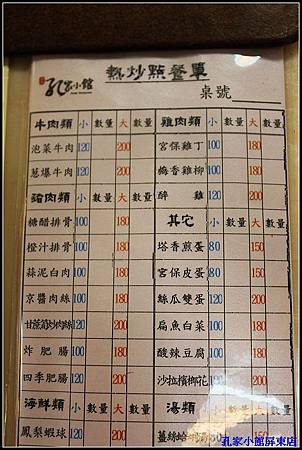 孔家小館 熱炒點餐單
桌號
牛肉類 小 數量 大 數量
泡菜牛肉 120 200
蔥爆牛肉 120 200
豬肉類 小 數量 大 數量
糖醋排骨 100 180
橙汁排骨 100 180
蒜泥白肉 100 180
京醬肉絲 100 180
甘藍菇炒肉絲 120 200
炸肥腸 100 180
四季肥腸 120 200
海鮮類 小 數量 大 數量
鳳梨蝦球 120 200
雞肉類 小 數量 大 數量
宮保雞丁 100 180
椒香雞柳 100 180
醉雞 120 200
其它 小 數量 大 數量
塔香煎蛋 80 150
宮保皮蛋 80 150
絲瓜雙蛋 120 200
扁魚白菜 100 180
酸辣豆腐 100 180
沙拉檳榔花 120 200
湯類 小 數量 大 數量
薑絲蛤 80 150
孔家小館屏東店